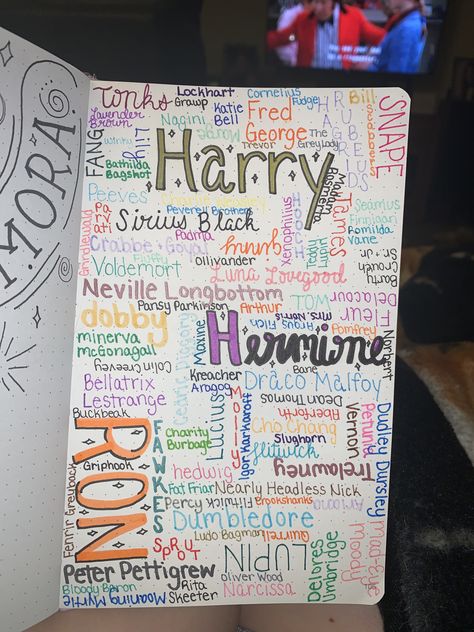 MORA
Tonks
Lockhart
Cornelius
Fudge
Bill
Scabbers
SNAPE
Grawp
Katie
Bell
Fred
HAGRID
Lavender
Brown
Nagini
George
FANG
Winky
Lily
Trevor
The
Grey Lady
Harry
Bathilda
Bagshot
Madam
Rosmerta
James
Peeves
Peverell Brothers
Seamus
Finnigan
Parvati
Sirius Black
Xenophilius
Romilda
Vane
Grindelwald
Crabbe + Goyle
Padma
Ginny
Teddy
Fluffy
Voldemort
Ollivander
Luna Lovegood
Barty
Crouch
Sr. Jr.
Neville Longbottom
TOM
Delacour
Fleur
Pansy Parkinson
Arthur
Mrs. Norris
Argus Filch
Pomfrey
dobby
minerva
mcGonagall
Maxine
Hermione
Norbert
Colin Creevey
Cedric Diggory
Bane
Kreacher
Aragog
Draco Malfoy
Bellatrix
Lestrange
Lucius
MOLLY
Dean Thomas
Aberforth
Buckbeak
Igor Karkaroff
Cho Chang
Vernon
Petunia
Dudley Dursley
RON
FAWKES
Charity
Burbage
Slughorn
flitwick
Griphook
hedwig
Trelawney
Fenrir Greyback
Fat Friar
Nearly Headless Nick
Ariana
Percy
Flitwick
Crookshanks
Dumbledore
Quirrell
Ludo Bagman
SPROUT
LUPIN
Delores
Umbridge
mad-Eye
moody
Peter Pettigrew
oliver Wood
Bloody Baron
Rita
Skeeter
Narcissa
Moaning Myrtle